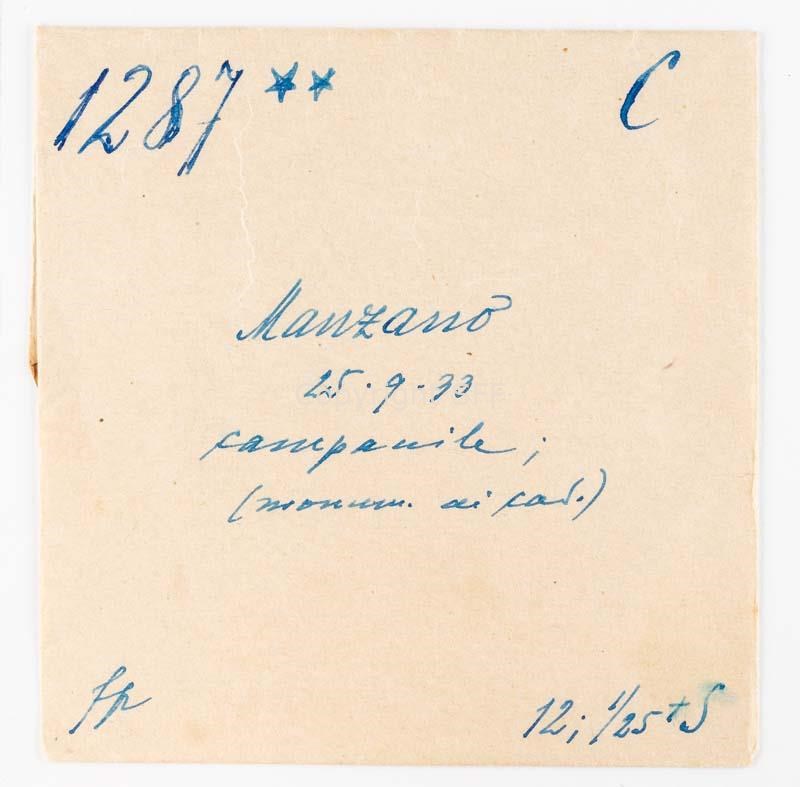 1287 ** C
Manzano
25.9.33
campanile;
(monum. ai cad.)
fp
12; 1/25 + S